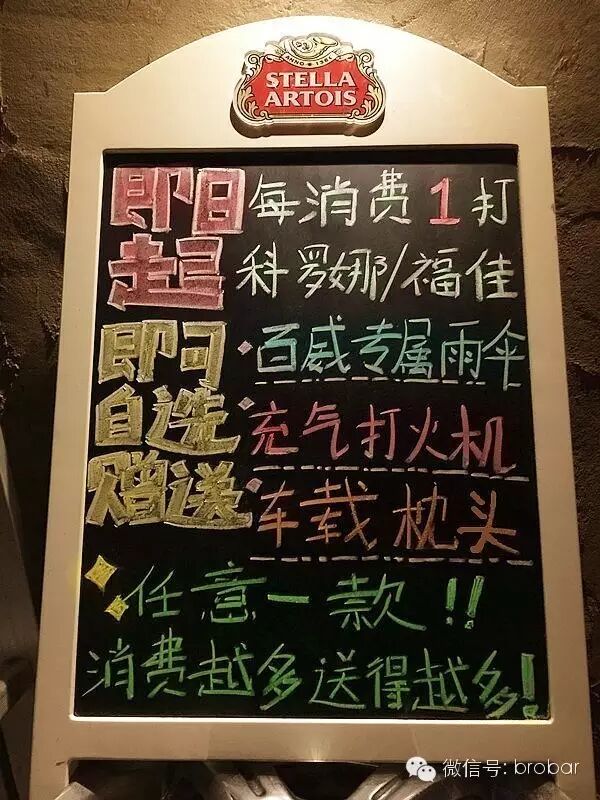 ANNO 1366
STELLA
ARTOIS
即日起
每消费1打
科罗娜/福佳
即可自选赠送
·百威专属雨伞
充气打火机
车载枕头
任意一款!!
消费越多送得越多!
微信号: brobar